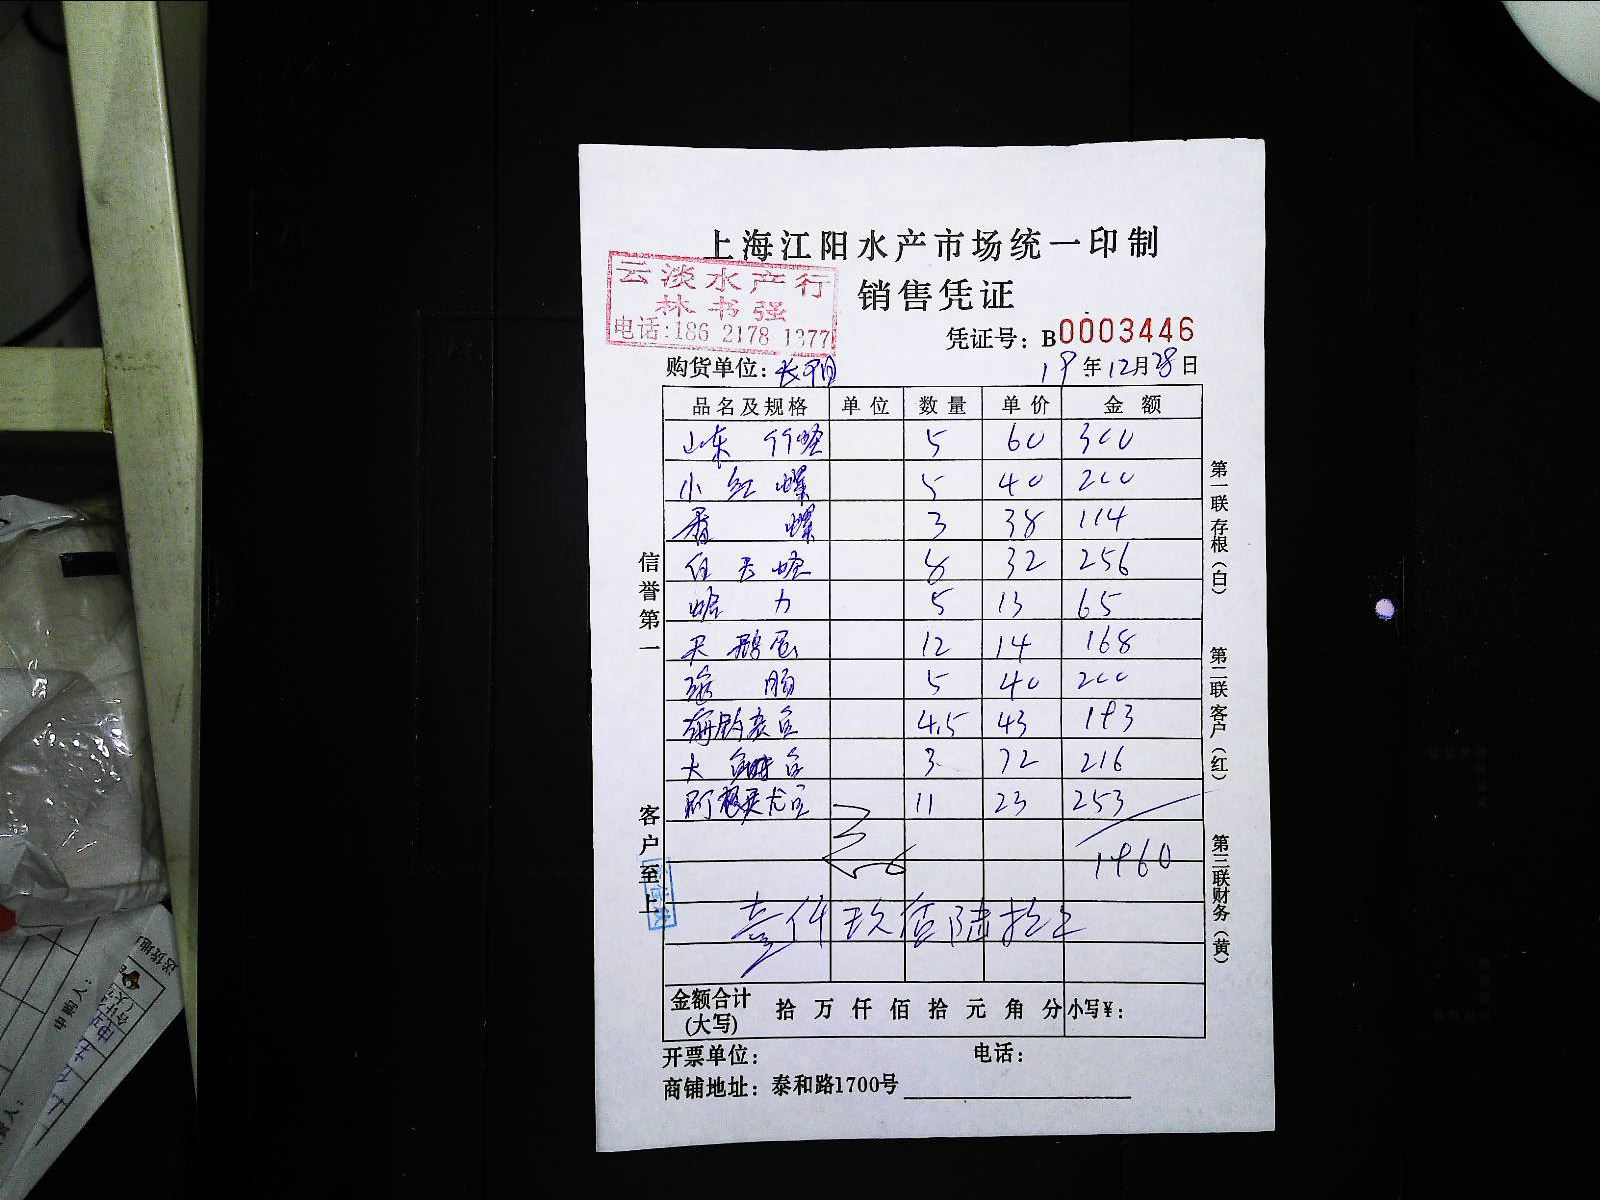 上海江阳水产市场统一印制
销售凭证
云淡水产行
林书强
电话:186 2178 1377
凭证号: B0003446
购货单位: 长阳 19年12月28日
品名及规格 单位 数量 单价 金额
山东 竹蛏 5 60 300
小红螺 5 40 200
香螺 3 38 114
8 32 256
蛤力 5 13 65
天鹅蛋 12 14 168
海肠 5 40 200
4.5 43 193
大 3 72 216
阿根廷尤鱼 11 23 253
1960
壹仟玖佰陆拾正
金额合计(大写) 拾万仟佰拾元角分 小写¥:
开票单位: 电话:
商铺地址: 泰和路1700号
信誉第一
客户至上
第一联存根(白)
第二联客户(红)
第三联财务(黄)
申购人: